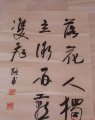 落花人獨
立微雨燕
雙飛